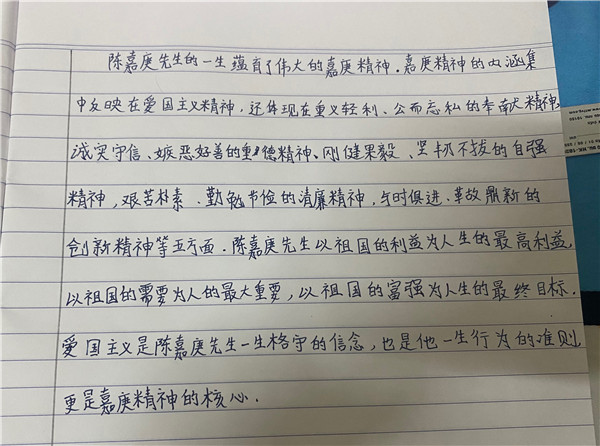 陈嘉庚先生的一生蕴育了伟大的嘉庚精神.嘉庚精神的内涵集
中反映在爱国主义精神,还体现在重义轻利、公而忘私的奉献大精神,
诚实守信、嫉恶好善的重德精神、刚健果毅、坚韧不拔的自强
精神,艰苦朴素、勤勉节俭的清廉精神,与时俱进、革故鼎新的
创新精神等五方面.陈嘉庚先生以祖国的利益为人生的最高利益,
以祖国的需要为人的最大重要,以祖国的富强为人生的最终目标.
爱国主义是陈嘉庚先生一生格守的信念,也是他一生行为的准则,
更是嘉庚精神的核心.